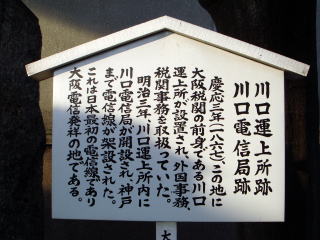 川口運上所跡
川口電信局跡
慶応三年(一八六七)、この地に
大阪税関の前身である川口
運上所が設置され、外国事務、
税関事務を取扱っていた。
明治三年、川口運上所内に
川口電信局が開設され、神戸
まで電信線が架設された。
これは日本最初の電信線であり
大阪電信発祥の地である。
大